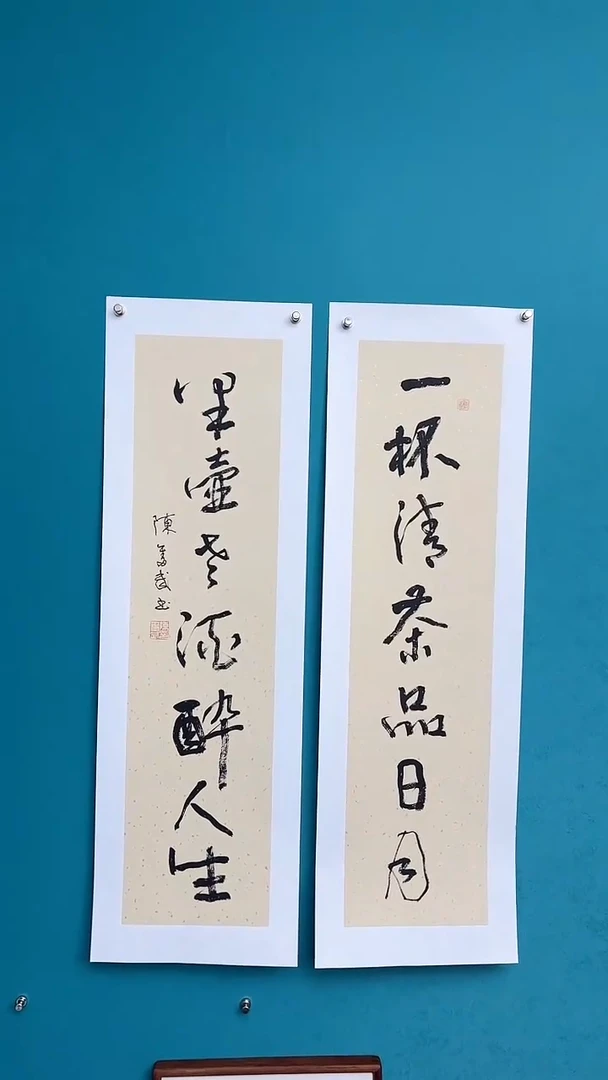 一杯清茶品日月
半壺老酒醉人生
陳武书